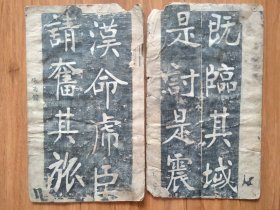 既臨其域
是討是震
漢命虎臣
請奮其旅